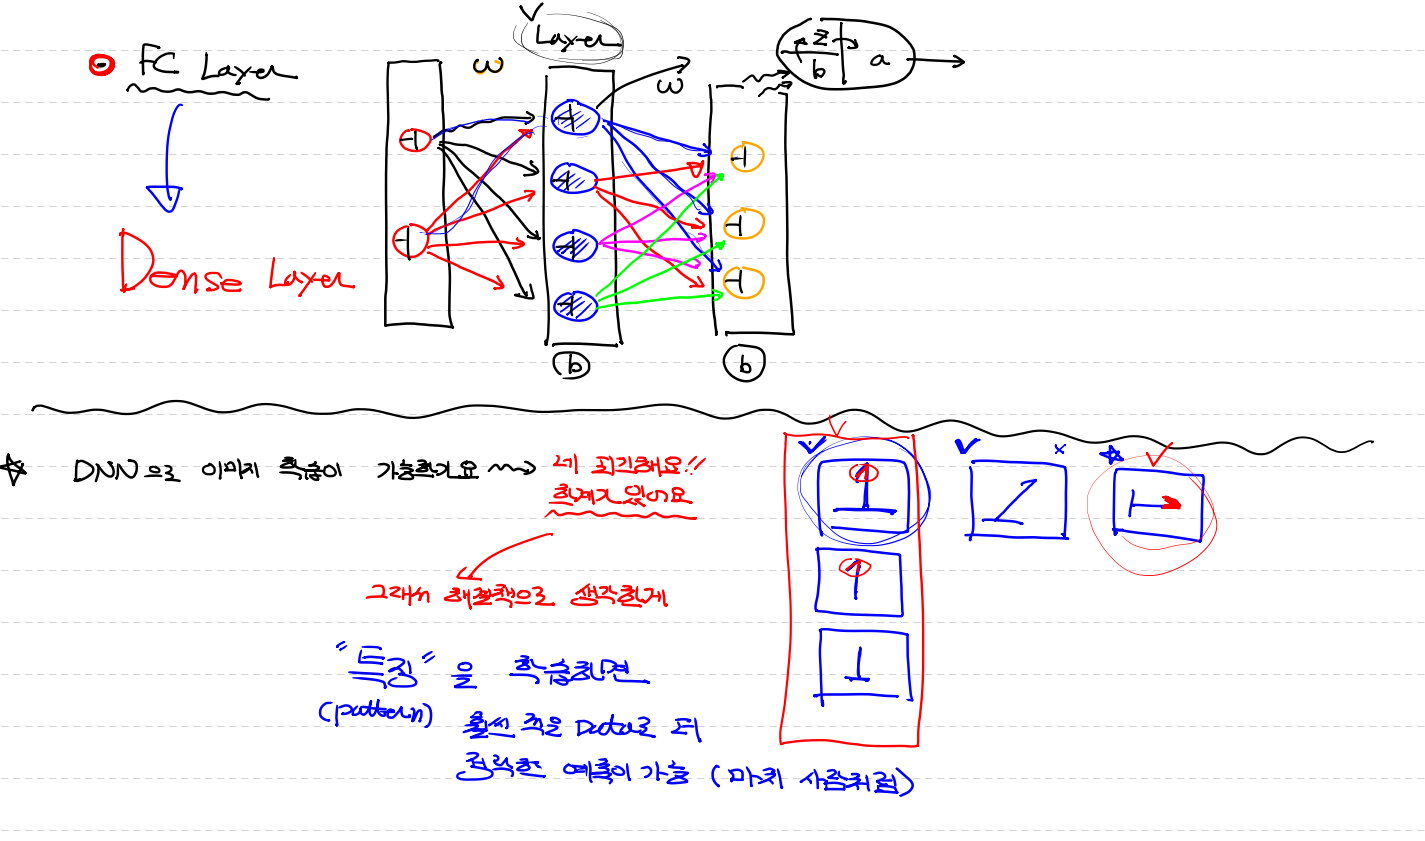 FC Layer
Dense Layer
ω
Layer
ω
z
b
a
b
b
DNN으로 이미지 학습이 가능한가요
네 되긴해요!!
한계가 있어요
그래서 해결책으로 생각한게
"특징"을 학습하면
(pattern)
훨씬 적은 Data로 더
정확한 예측이 가능 (마치 사람처럼)
1
1
1
1
1